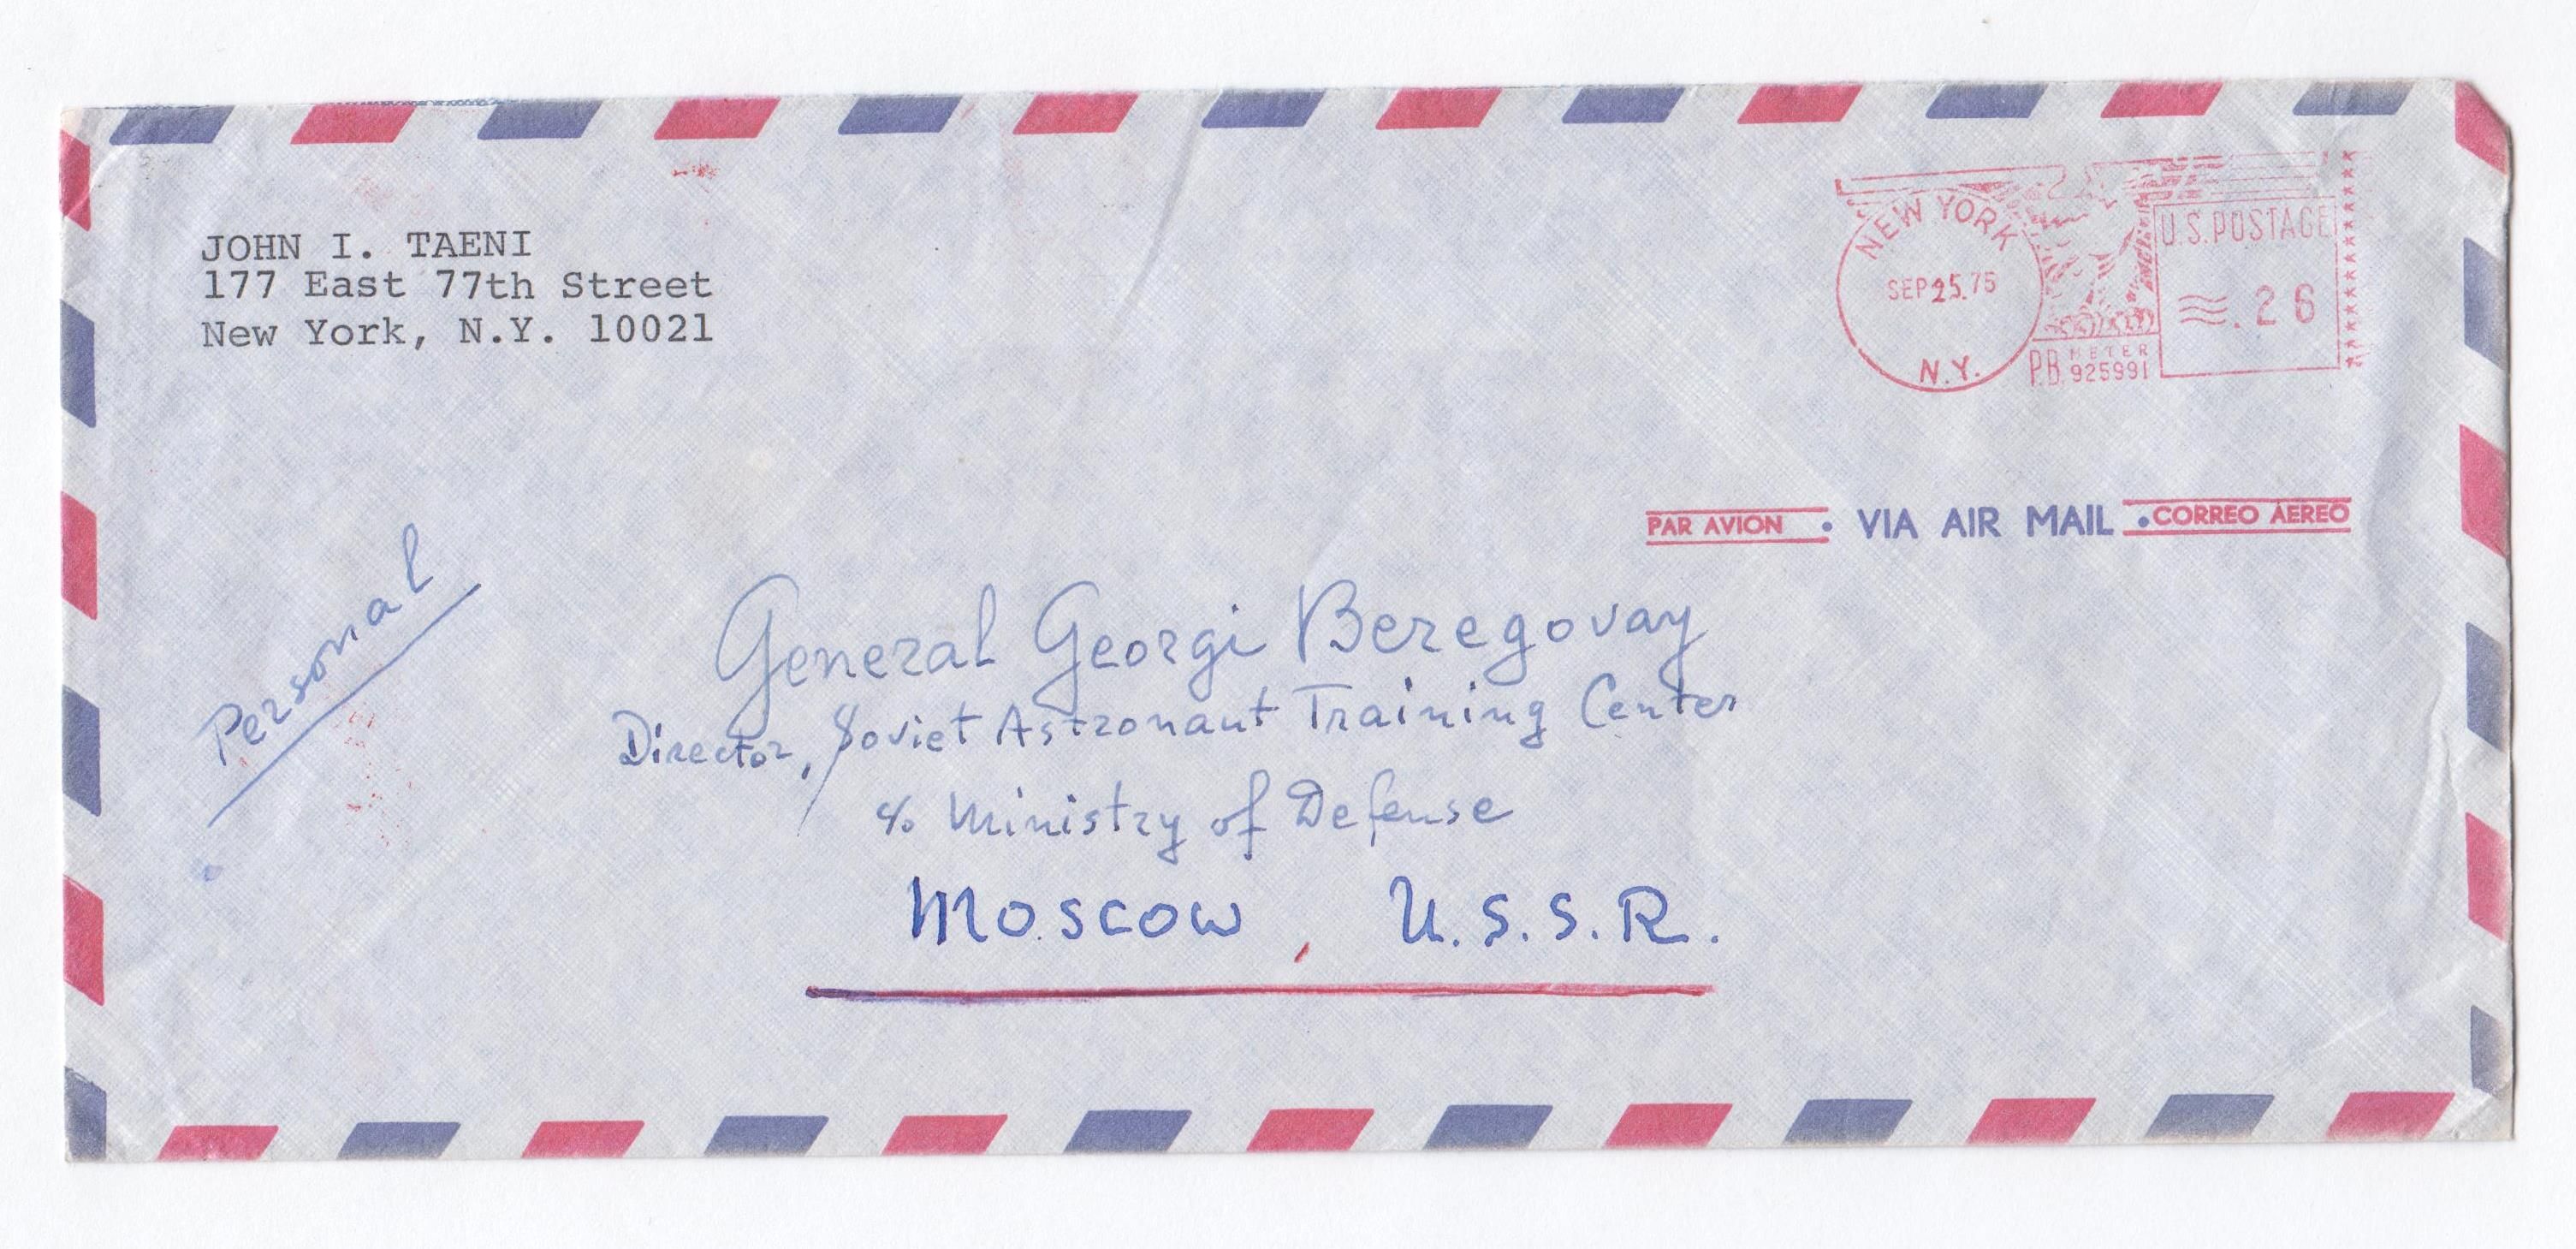 JOHN I. TAENI
177 East 77th Street
New York, N.Y. 10021
NEW YORK
SEP 25.75
N.Y.
P.B. METER
925991
U.S. POSTAGE
.26
PAR AVION • VIA AIR MAIL • CORREO AEREO
Personal
General Georgi Beregovay
Director, Soviet Astronaut Training Center
c/o Ministry of Defense
Moscow, U.S.S.R.